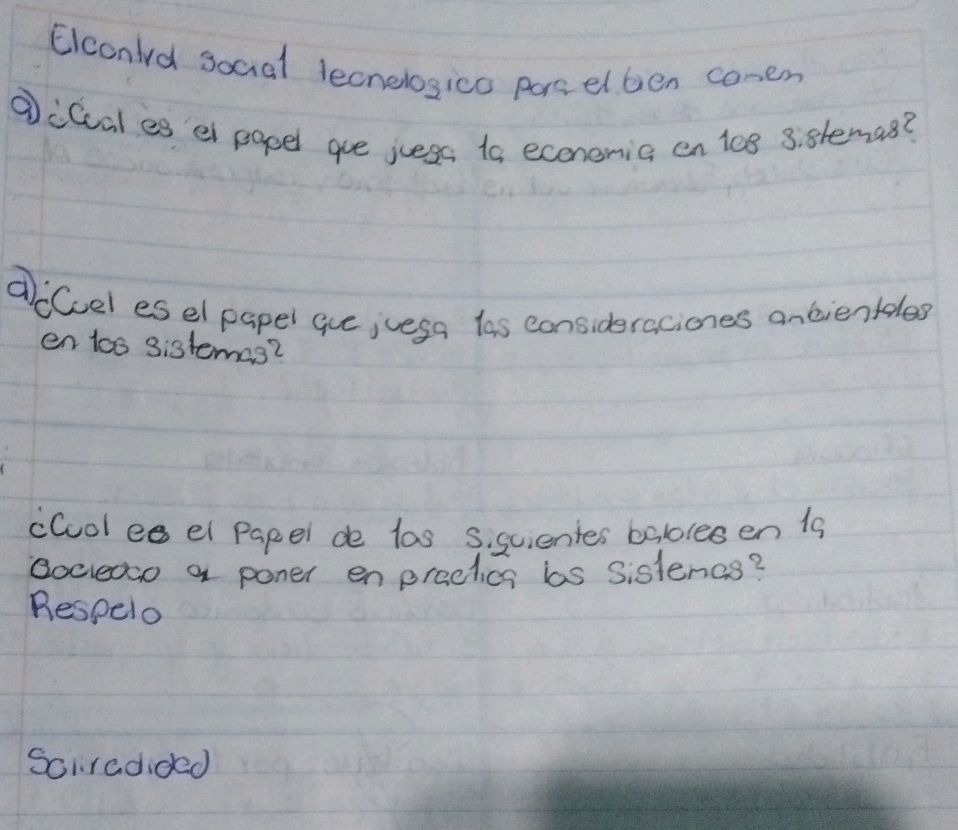 Elcontrol social tecnologico para el bien comen
a) ¿Cual es el papel que juega la economia en los sistemas?
a) ¿Cuel es el papel que juega las consideraciones anbientales
en los sistemas?
¿Cual es el Papel de los siguientes balores en la
a poner en practica los sistemas?
Respeto